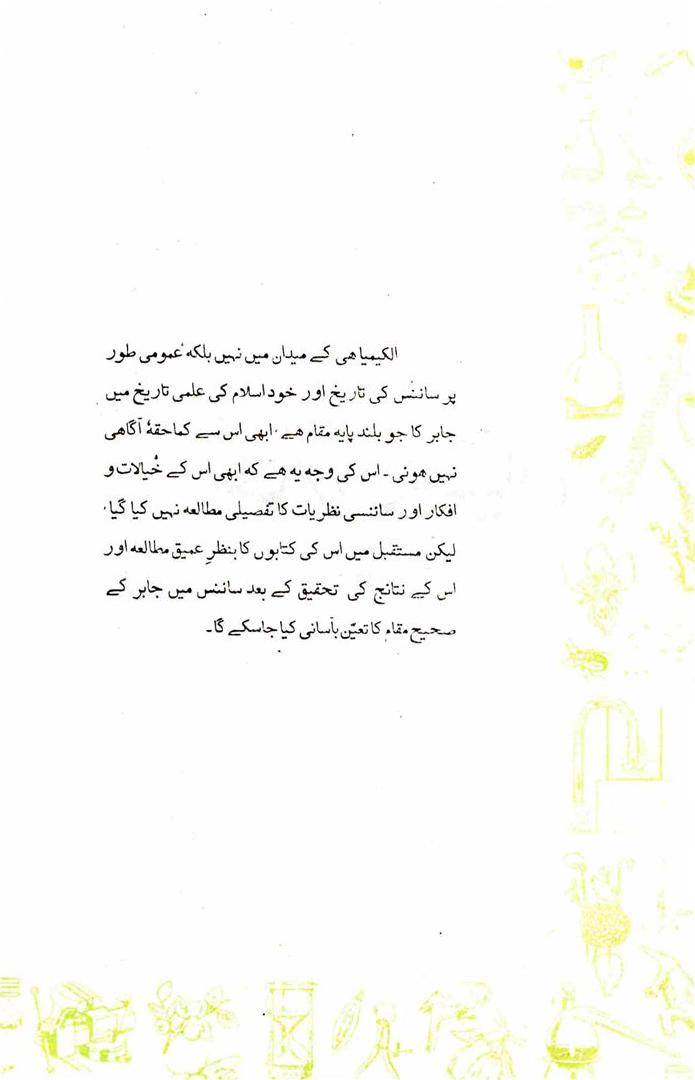 الکیمیا هی کے میدان میں نہیں بلکہ عمومی طور
پر سائنس کی تاریخ اور خود اسلام کی علمی تاریخ میں
جابر کا جو بلند پایہ مقام هے ، ابھی اس سے کماحقہٗ آگاهی
نہیں هوئی ۔ اس کی وجہ یہ هے کہ ابھی اس کے خیالات و
افکار اور سائنسی نظریات کا تفصیلی مطالعہ نہیں کیا گیا ،
لیکن مستقبل میں اس کی کتابوں کا بنظرِ عمیق مطالعہ اور
اس کے نتائج کی تحقیق کے بعد سائنس میں جابر کے
صحیح مقام کا تعیّن بآسانی کیا جاسکے گا ۔